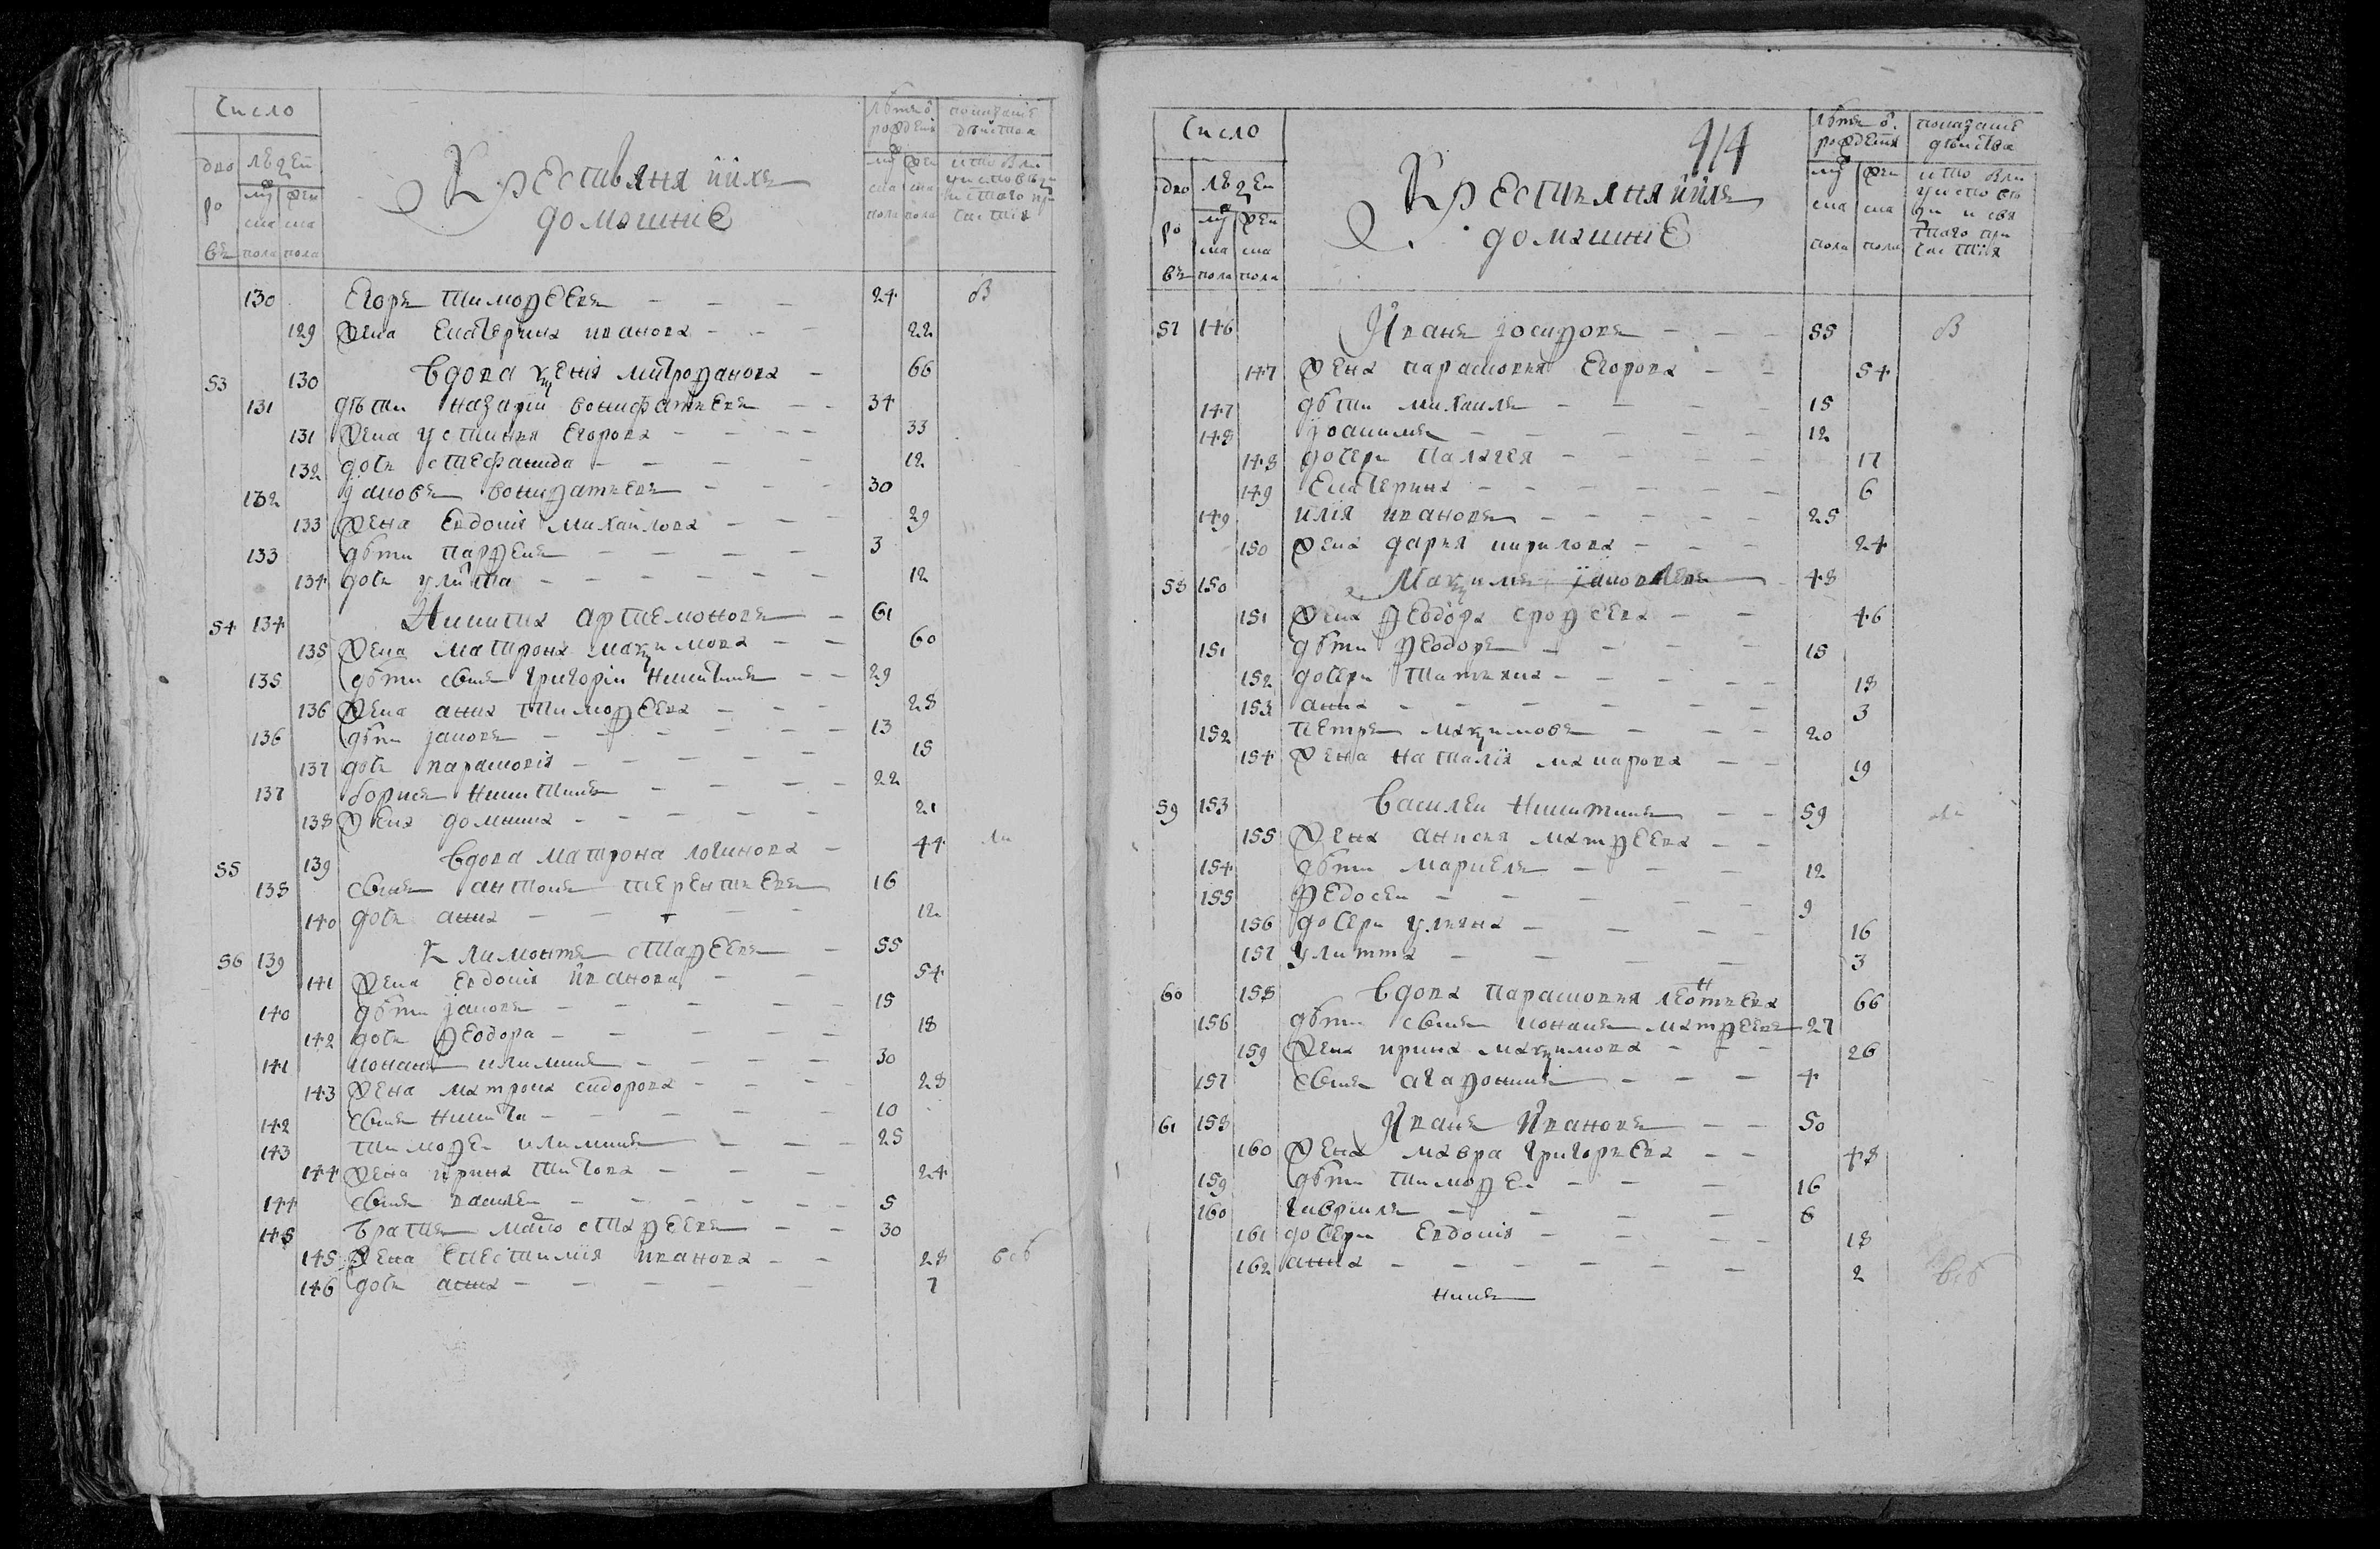 Число
дво ро въ
людей
муска пола
женска пола
Крестьяня ихъ
домашние
лѣта от рождения
муска пола
женска пола
показание действа
кто были у исповеди и святаго причастия
130 Егоръ тимофеевъ 24 В
129 жена екатерина иванова 22
53 130 Вдова ѯения митрофанова 66
131 дѣти назарий вонифатьевъ 34
131 жена устинья егорова 33
132 дочь стефанида 12
132 яковъ вонифатьевъ 30
133 жена евдокия михайлова 29
133 дѣти парфенъ 3
134 дочь улита 12
54 134 Никита артемоновъ 61
135 жена матрона маѯимова 60
135 дѣти сынъ григорій никитинъ 29
136 жена анна тимофеева 28
136 дѣти яковъ 13
137 дочь парасковия 15
137 борисъ никитинъ 22
138 жена домника 21
55 139 Вдова матрона логинова 44
138 сынъ антонъ терентьевъ 16
140 дочь анна 12
56 139 Климонтъ астафеевъ 55
141 жена евдокия иванова 54
140 дѣти яковъ 15
142 дочь феодора 18
141 конанъ климинъ 30
143 жена матрона сидорова 28
142 сынъ никита 10
143 тимофей климинъ 25
144 жена ирина титова 24
144 сынъ василей 5
145 братъ стафеевъ 30
145 жена иванова 28 всѣ
146 дочь анна 7
414
Число
дво ро въ
людей
муска пола
женска пола
Крестьяня ихъ
домашние
лѣта от рождения
муска пола
женска пола
показание действа
кто были у исповеди и святаго причастия
57 146 Иванъ иосифовъ 55 В
147 жена парасковия егорова 54
147 дѣти михаилъ 15
148 иоакимъ 12
148 дочери палагея 17
149 екатерина 6
149 илия ивановъ 25
150 жена дарья кирилова 24
58 150 Маѯимъ яковлевъ 48
151 жена феодора ерофеева 46
151 дѣти феодоръ 15
152 дочери татьяна 18
153 анна 3
152 петръ маѯимовъ 20
154 жена наталия макарова 19
59 153 Василей никитинъ 59
155 жена анисья матфеева
154 дѣти маркелъ 12
155 федосей 9
156 дочери ульяна 16
157 улитта 3
60 158 Вдова парасковья леонтьева 66
156 дѣти сынъ кононъ матфеевъ 27
159 жена ирина маѯимова 26
157 сынъ агафоникъ 4
61 158 Иванъ Ивановъ 50
160 жена мавра григорьева 48
159 дѣти тимофей 16
160 гавриилъ 6
161 дочери евдокия 18
162 анна 2 всѣ